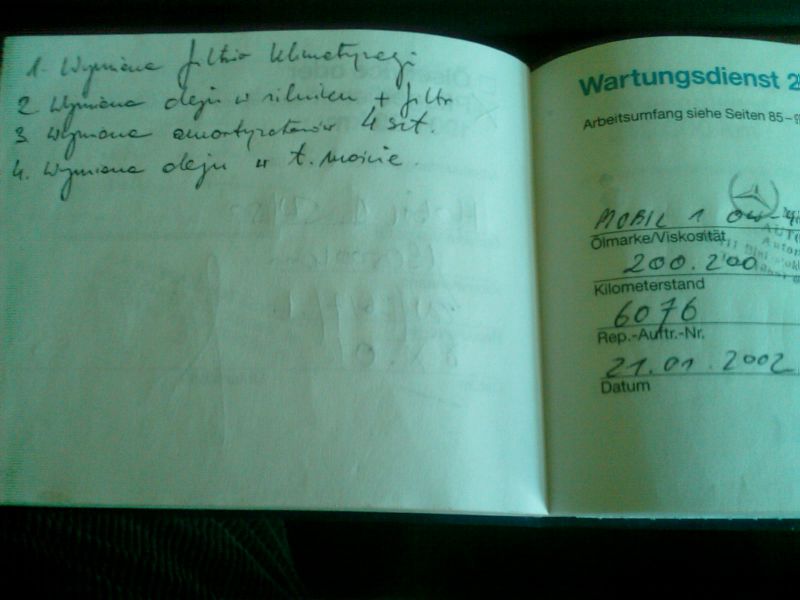 1. Wymiana filtra klimatyzacji
2. Wymiana oleju w silniku + filtr
3. Wymiana amortyzatorów 4 szt.
4. Wymiana oleju w t. moście
Wartungsdienst
Arbeitsumfang siehe Seiten 85-
MOBIL 1
Ölmarke/Viskosität
200.200
Kilometerstand
6076
Rep.-Auftr.-Nr.
21.01.2002
Datum